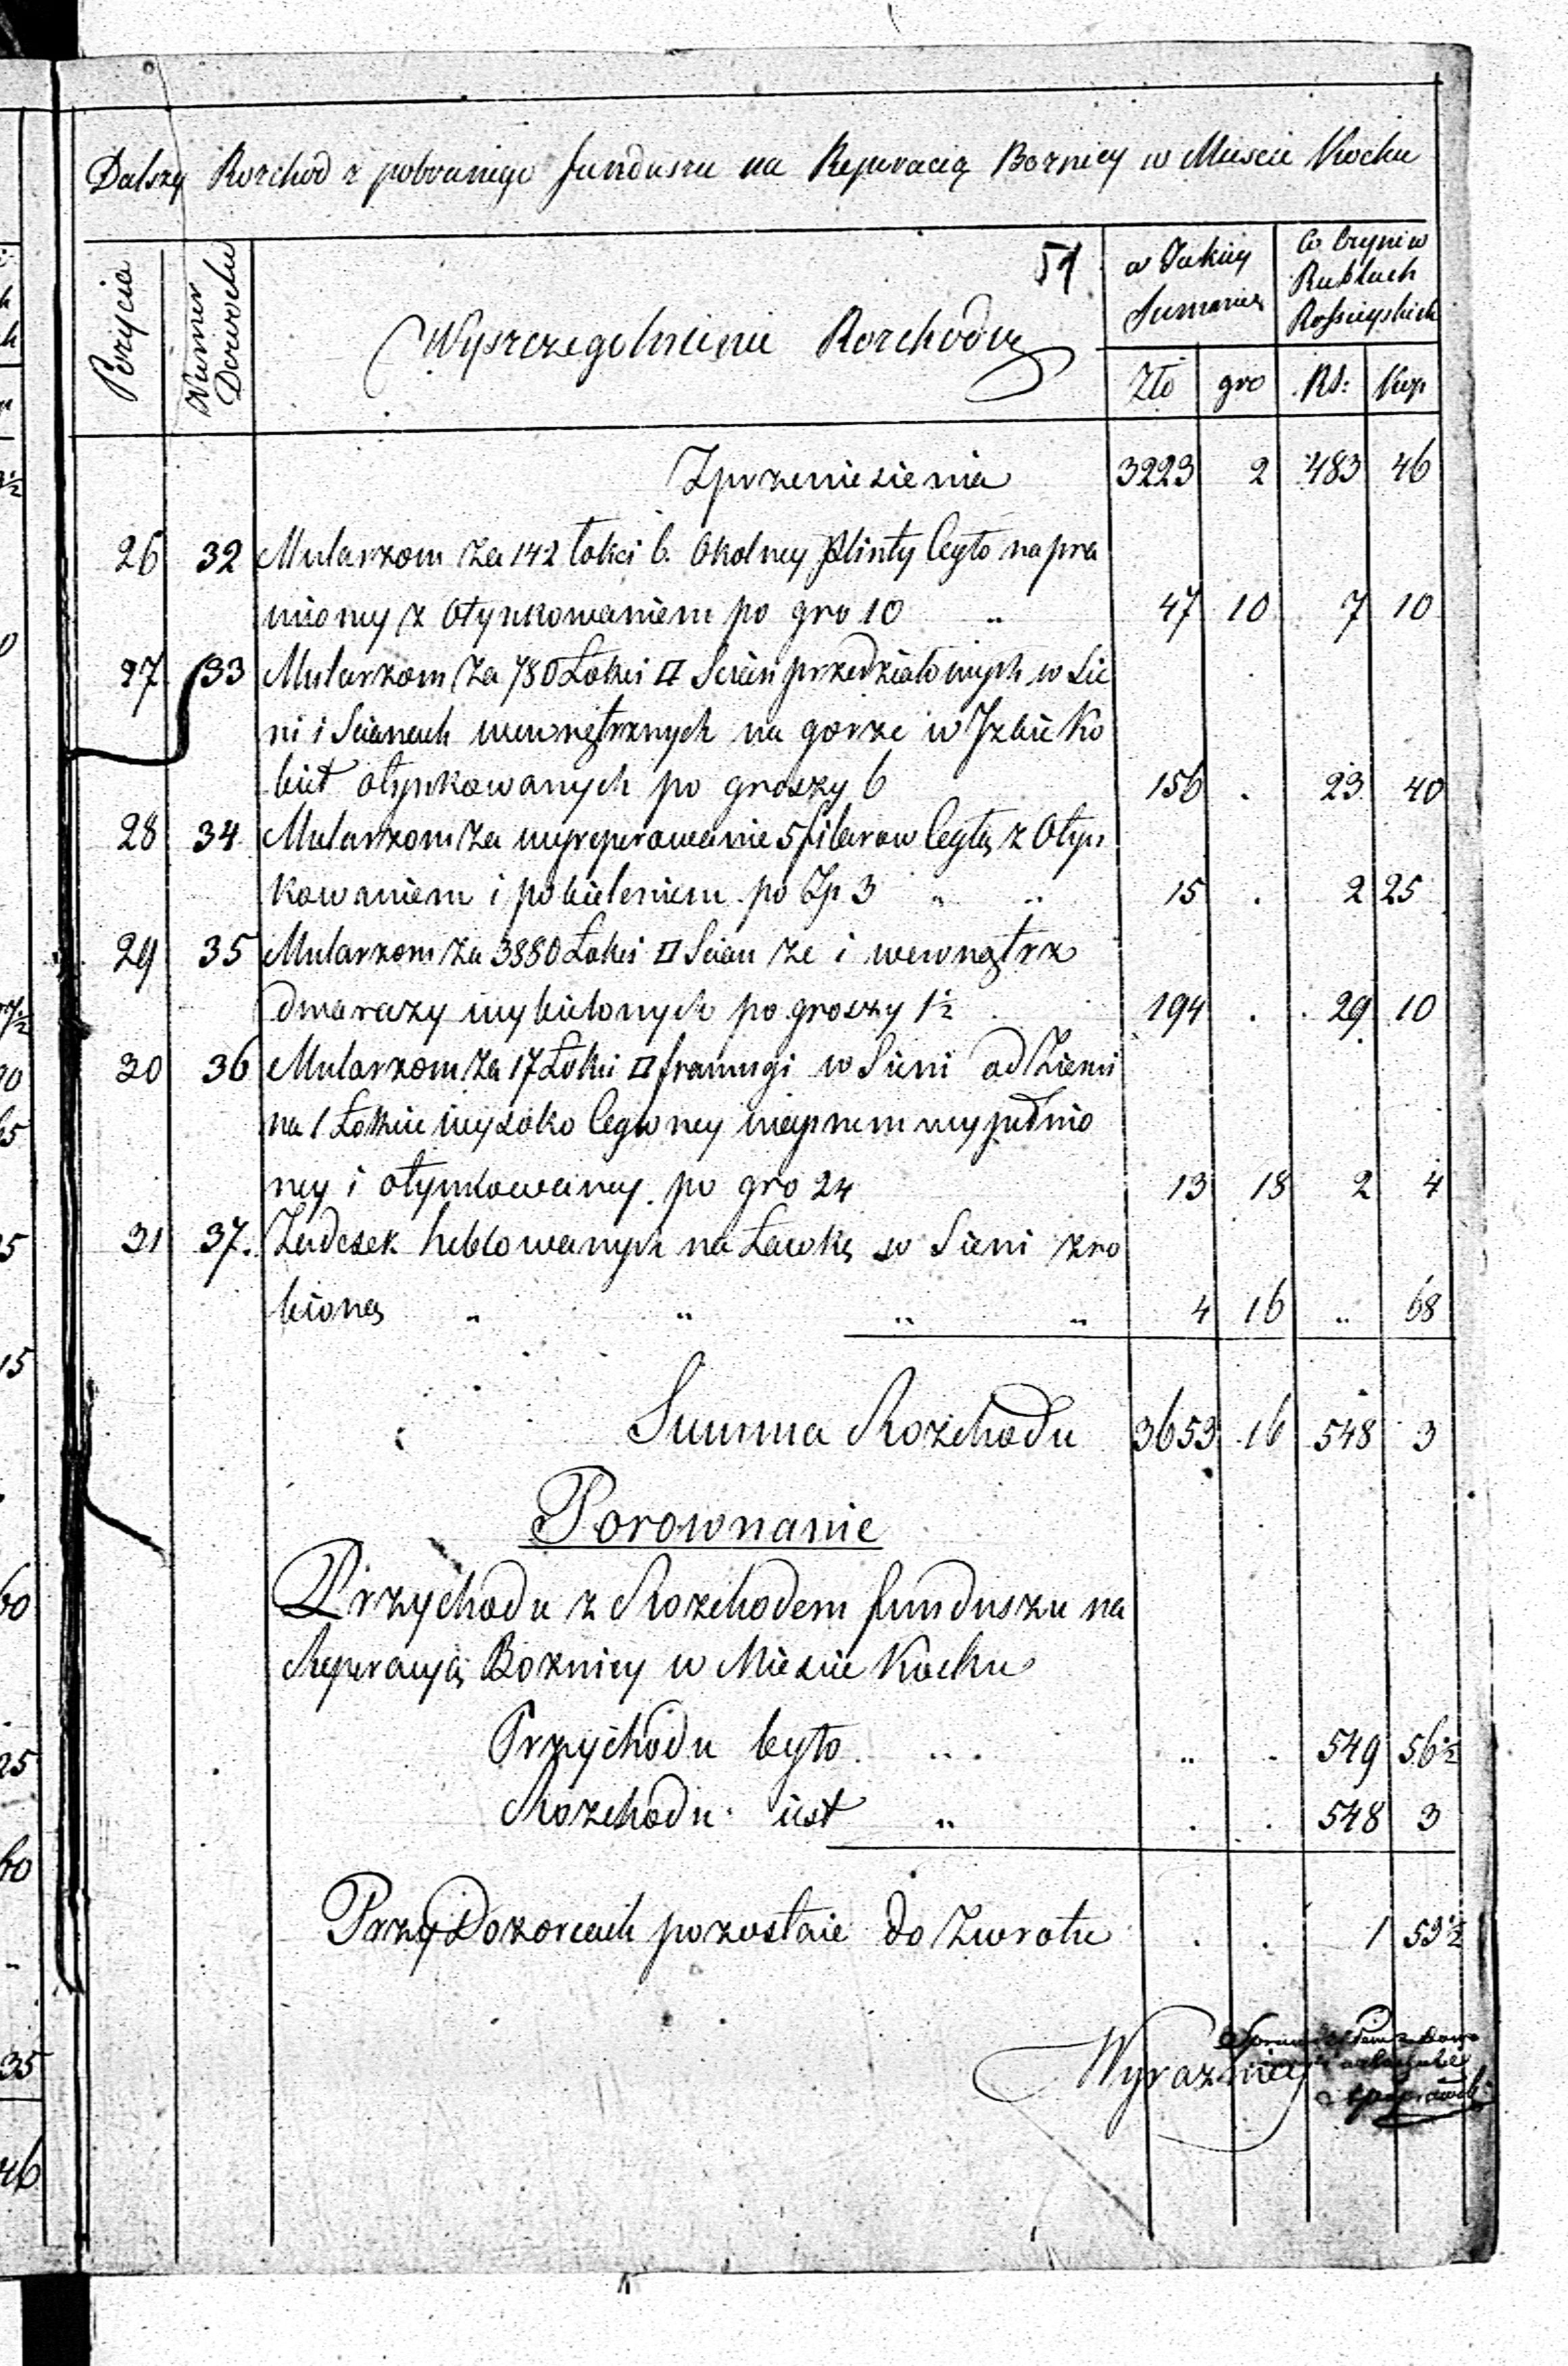 Dalszy Rozchod z pobranego funduszu na Reperacią Boznicy w Miescie Kocku
Pozycia
Numer Dowodu
Wyszczegolnienie Rozchodu
51
w Jakiey Summie
Co Czyni w Rublach Rossyiskich
Złō gro RS: Kop
Z przeniesienia 3223 2 483 46
26 32 Mularzom za 142 łokci b. Okolney plinty Cegłō napra
wioney z Otynkowaniem po gro 10 " 47 10 7 10
27 33 Mularzom za 780 Łokci □ Scian przedziałowych w Sie
ni i Scianach wewnętrznych na gorze w Izbie Ko
biet otynkowanych po groszy 6 156 . 23 40
28 34 Mularzom za wyreperowanie 5 filarow Cegłą z Otyn
kowaniem i pobieleniem po Zp 3 " " 15 . 2 25
29 35 Mularzom za 3880 Łokci □ Scian ze i wewnątrz
dwa razy wybielonych po groszy 1½ 194 . 29 10
30 36 Mularzom za 17 Łokci □ framugi w Sieni od Ziemi
na 1 Łokcie wysoko Cegło ney wapnem wypełnio
ney i otynkowaney po gro 24 13 18 2 4
31 37. Za desek heblowanych na Ławkę w Sieni zro
bioną " " " " 4 16 " 68
Summa Rozchodu 3653 16 548 3
Porownanie
Przychodu z Rozchodem funduszu na
Reperacyą Boznicy w Miescie Kocku
Przychodu było " . " . 549 56½
Rozchodu iest " . . 548 3
Przy Dozorcach pozostaie do Zwrotu . . 1 53½